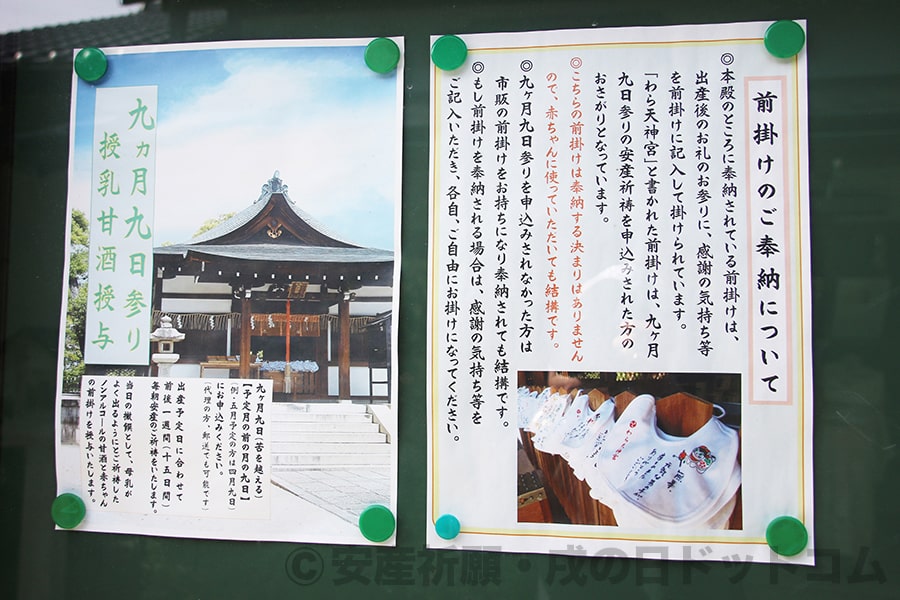 九ヵ月九日参り
授乳甘酒授与
九ヶ月九日(苦を越える)
【予定月の前の月の九日】
(例・五月予定の方は四月九日)
にお申込みください。
(代理の方、郵送でも可能です)
出産予定日に合わせて
前後一週間(十五日間)
毎朝安産のご祈祷をいたします。
当日の撤饌として、母乳が
よく出るようにとご祈祷した
ノンアルコールの甘酒と赤ちゃん
の前掛けを授与いたします。
前掛けのご奉納について
◎本殿のところに奉納されている前掛けは、
出産後のお礼のお参りに、感謝の気持ち等
を前掛けに記入して掛けられています。
「わら天神宮」と書かれた前掛けは、九ヶ月
九日参りの安産祈祷を申込みされた方の
おさがりとなっています。
◎こちらの前掛けは奉納する決まりはありません
ので、赤ちゃんに使っていただいても結構です。
◎九ヶ月九日参りを申込みされなかった方は
市販の前掛けをお持ちになり奉納されても結構です。
◎もし前掛けを奉納される場合は、感謝の気持ち等を
ご記入いただき、各自、ご自由にお掛けになってください。
©安産祈願・戌の日ドットコム